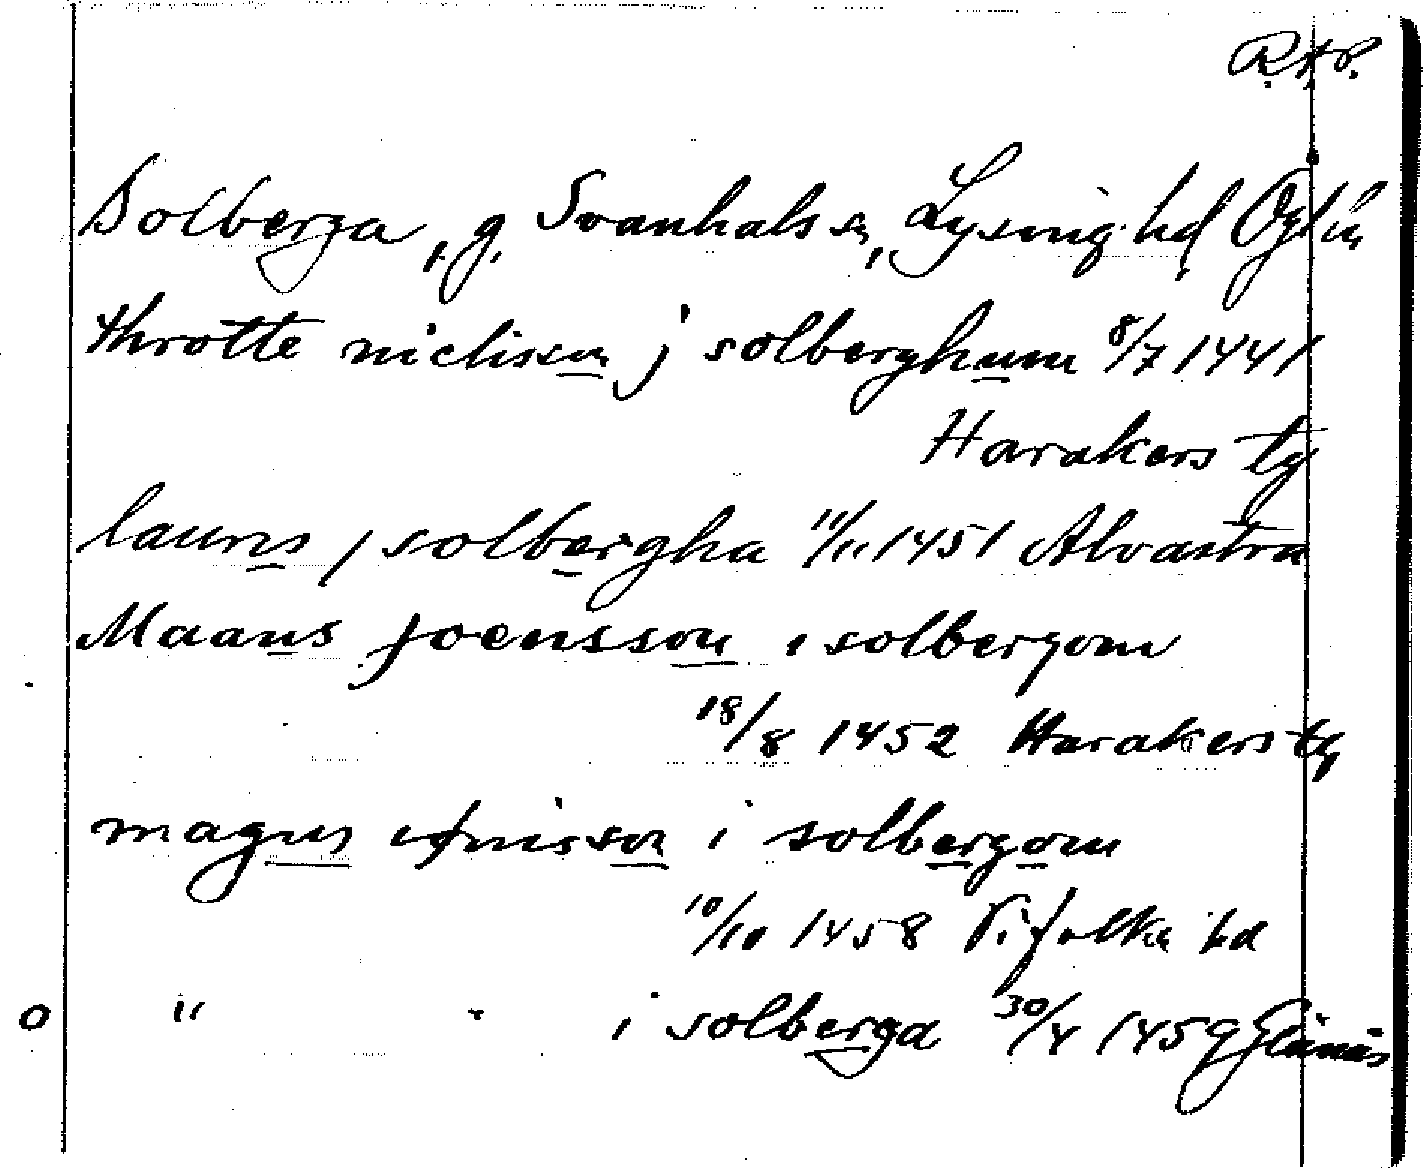 R.A.P.
Solberga, g. Svanhals sn, Lysing hd Ögtl
throtte niclisson j solberghum 8/7 1441
Harakers tg
laurns j solbergha 11/11 1451 Alvastra
Maans Joensson i solbergom
18/8 1452 Harakers tg
magns isson i solbergom
10/10 1458 Vifolka hd
0 " " i solberga 30/4 1459